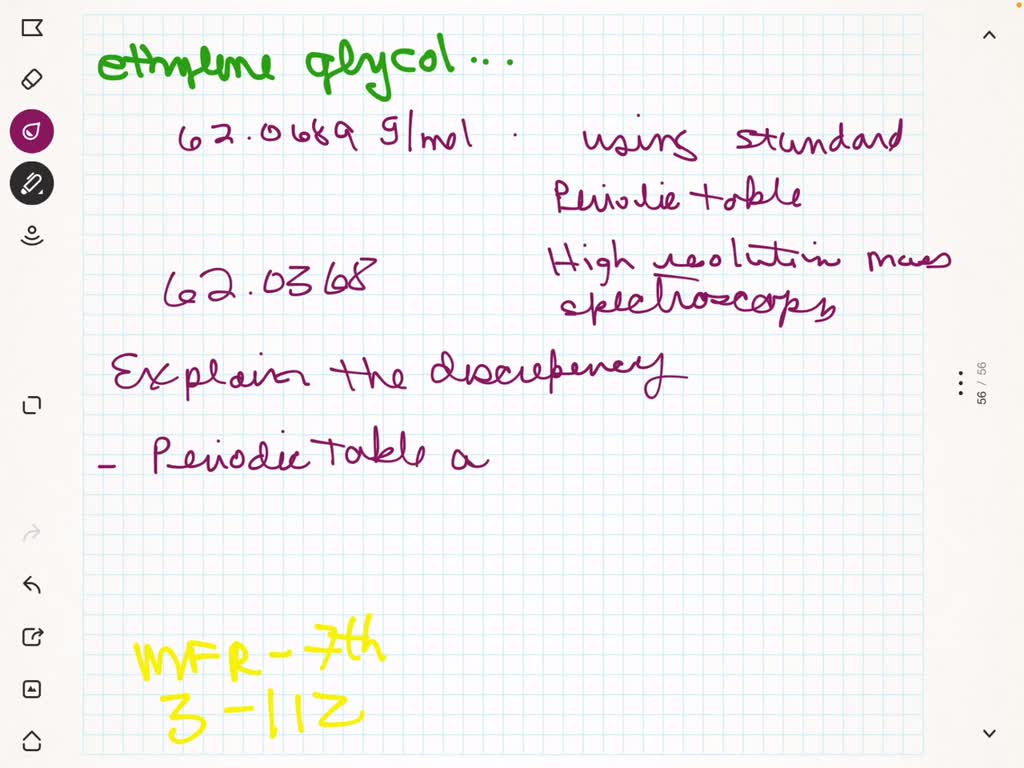 ethylene glycol...
62.0689 g/mol . using standard
Periodic table
62.0368
High resolution mass
spectroscopy
Explain the discrepency
- Periodic Table a
MFR - 7th
3 - 112
56 / 56